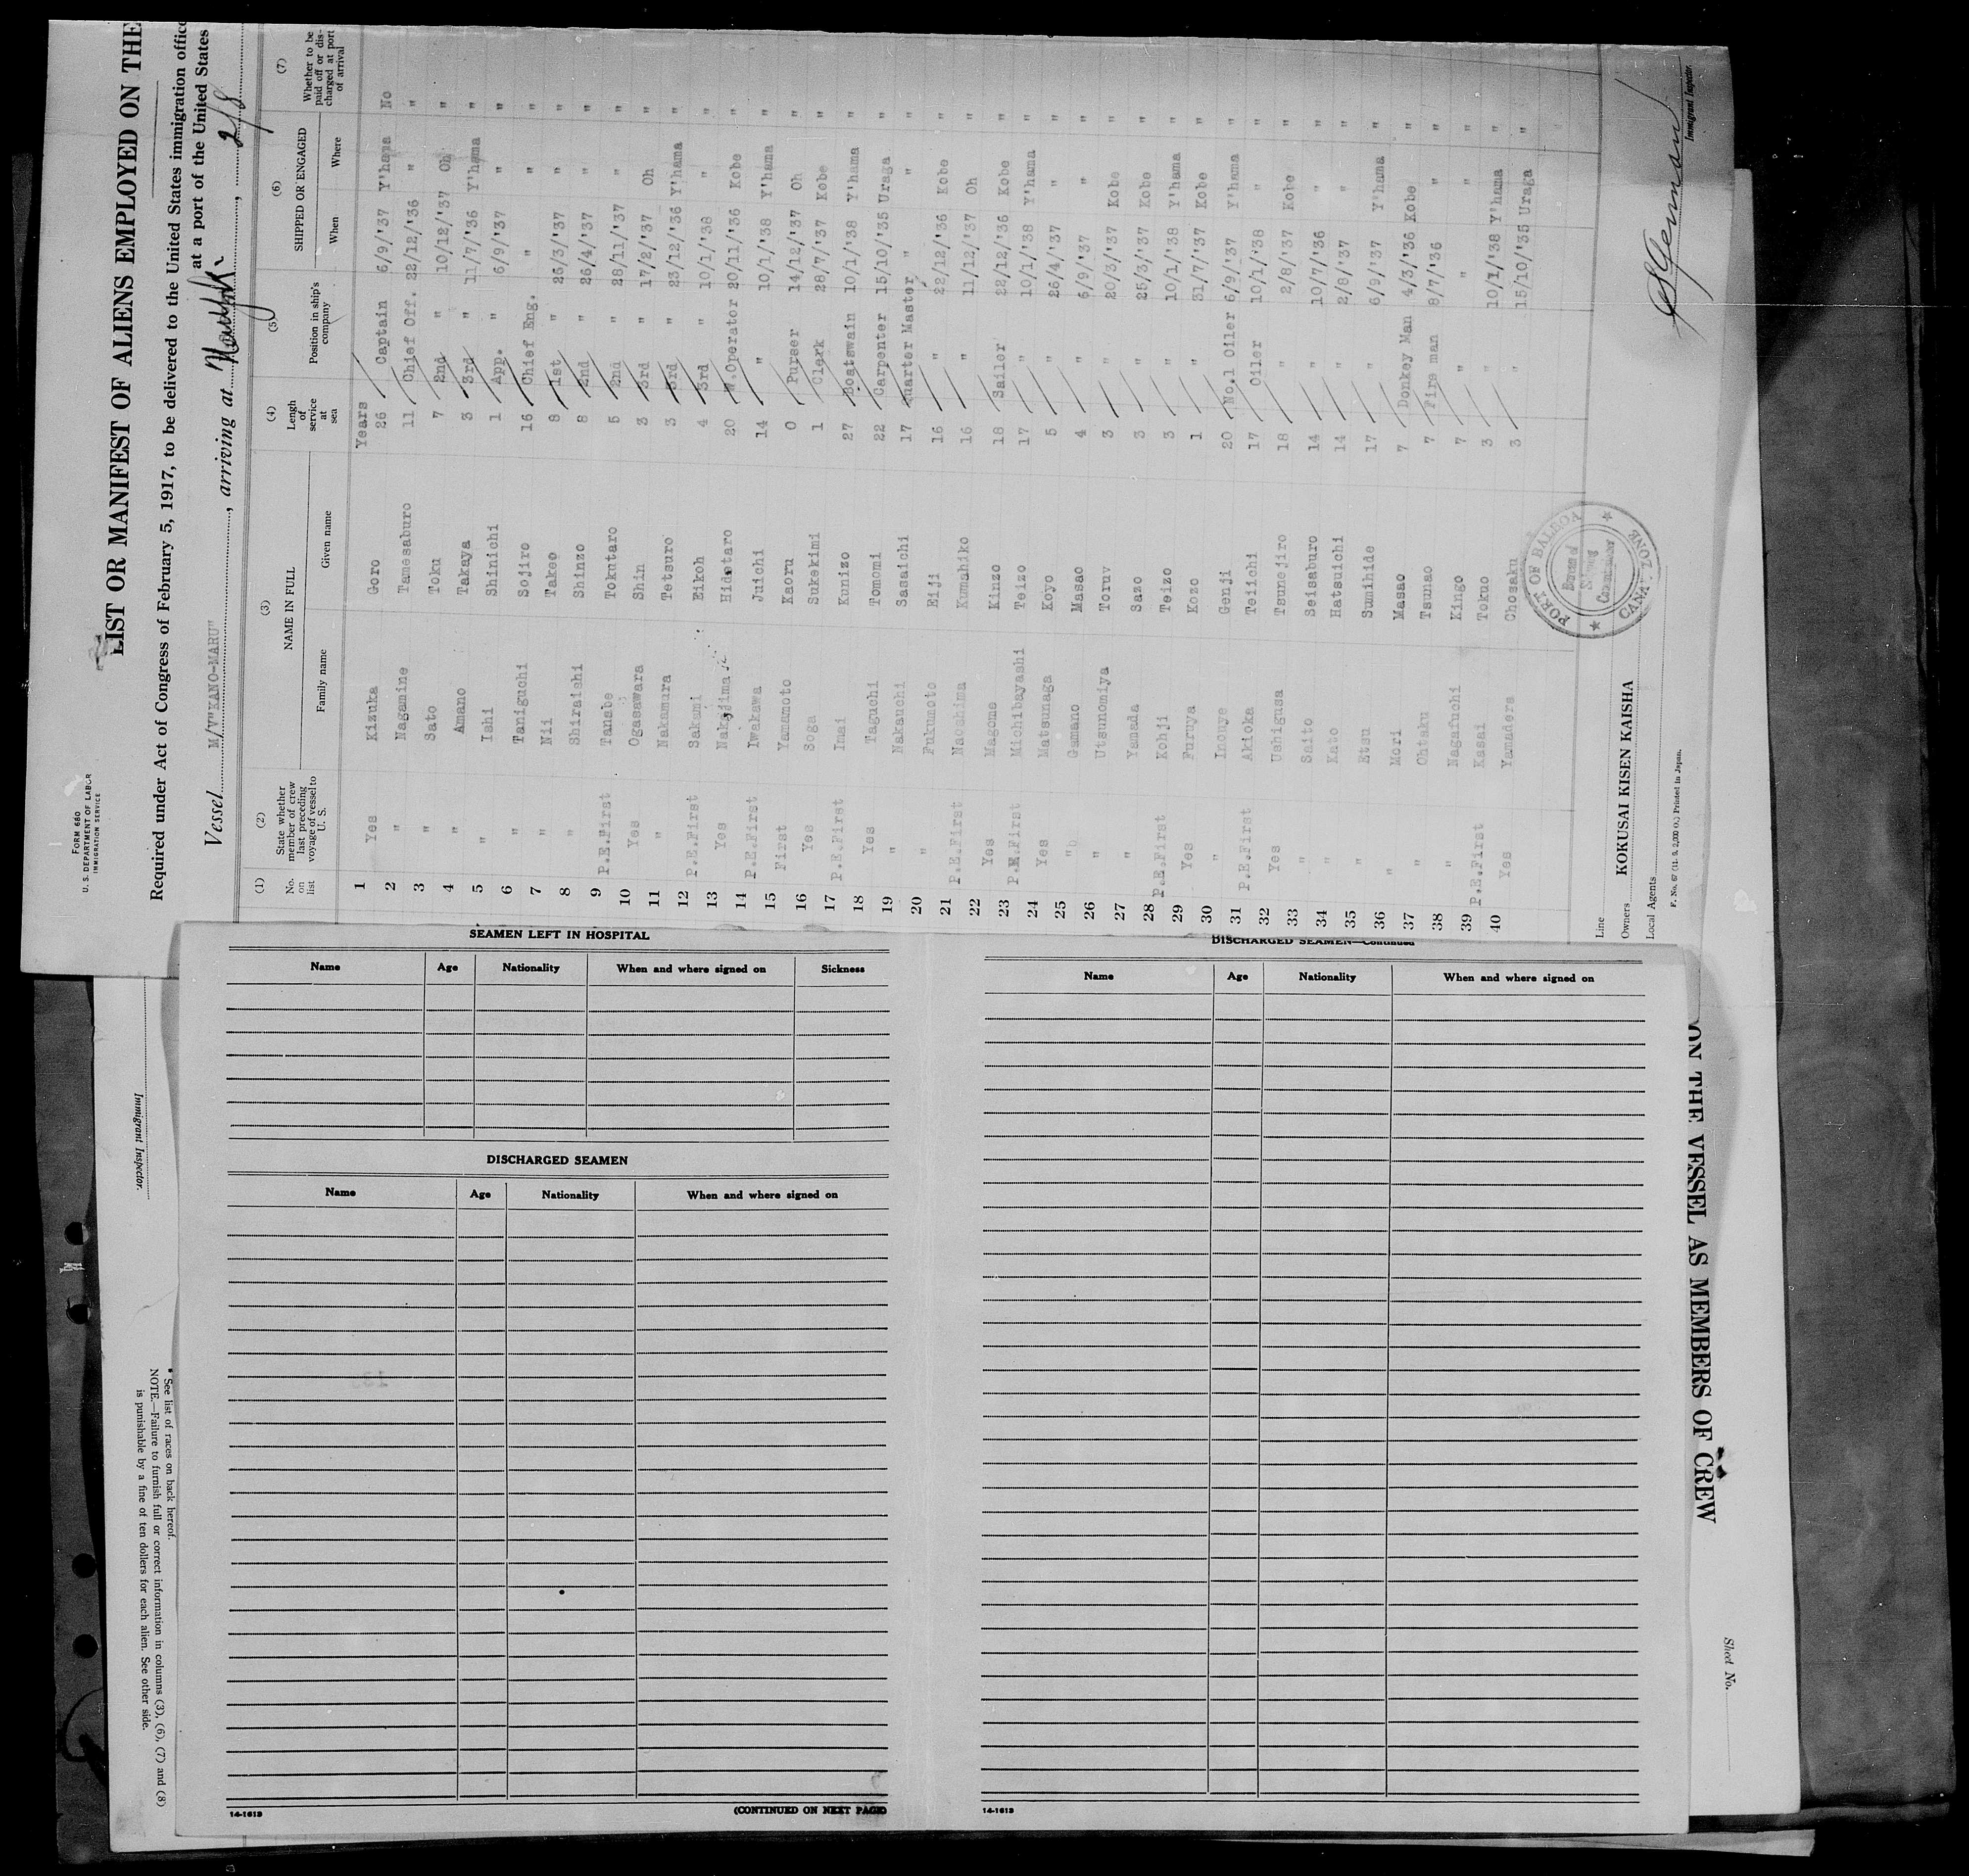 FORM 680
U. S. DEPARTMENT OF LABOR
IMMIGRATION SERVICE
LIST OR MANIFEST OF ALIENS EMPLOYED ON THE
Required under Act of Congress of February 5, 1917, to be delivered to the United States immigration
Vessel M/V"KANO-MARU", arriving at 2/8
at a port of the United States
(1) No. on list
(2) State whether member of crew last preceding voyage of vessel to U. S.
(3) NAME IN FULL Family name Given name
(4) Lengh of service at sea
(5) Position in ship's company
(6) SHIPPED OR ENGAGED When Where
(7) Whether to be paid off or discharged at port of arrival
Years
1 Yes Kizuka Goro 26 Captain 6/9/'37 Y'hama No
2 " Nagamine Tamesaburo 11 Chief Off. 22/12/'36 " "
3 " Sato Toku 7 2nd " 10/12/'37 Oh "
4 " Amano Takaya 3 3rd " 11/7/'36 Y'hama "
5 " Ishi Shinichi 1 App. " 6/9/'37 " "
6 " Taniguchi Sojiro 16 Chief Eng. " " "
7 " Nii Takeo 8 1st " 25/3/'37 " "
8 " Shiraishi Shinzo 8 2nd " 26/4/'37 " "
9 P.E.First Tanabe Tokutaro 5 2nd " 28/11/'37 " "
10 Yes Ogasawara Shin 3 3rd " 17/2/'37 Oh "
11 " Nakamura Tetsuro 3 3rd " 23/12/'36 Y'hama "
12 P.E.First Sakami Eikoh 4 3rd " 10/1/'38 " "
13 Yes Nakajima Hidetaro 20 W.Operator 20/11/'36 Kobe "
14 P.E.First Iwakawa Juichi 14 " 10/1/'38 Y'hama "
15 First Yamamoto Kaoru 0 Purser 14/12/'37 Oh "
16 Yes Soga Sukekimi 1 Clerk 28/7/'37 Kobe "
17 P.E.First Imai Kunizo 27 Boatswain 10/1/'38 Y'hama "
18 Yes Taguchi Tomomi 22 Carpenter 15/10/'35 Uraga "
19 " Nakauchi Sasaichi 17 Quarter Master " " "
20 " Fukumoto Eiji 16 " 22/12/'36 Kobe "
21 P.E.First Naoshima Kumahiko 16 " 11/12/'37 Oh "
22 Yes Magome Kinzo 18 Sailer 22/12/'36 Kobe "
23 P.E.First Michibayashi Teizo 17 " 10/1/'38 Y'hama "
24 Yes Matsunaga Koyo 5 " 26/4/'37 " "
25 " Gamano Masao 4 " 6/9/'37 " "
26 " Utsunomiya Toruv 3 " 20/3/'37 Kobe "
27 " Yamada Sazo 3 " 25/3/'37 Kobe "
28 P.E.First Kohji Teizo 3 " 10/1/'38 Y'hama "
29 Yes Furuya Kozo 1 " 31/7/'37 Kobe "
30 " Inouye Genji 20 No.1 Oiler 6/9/'37 Y'hama "
31 P.E.First Akioka Teiichi 17 Oiler 10/1/'38 " "
32 Yes Ushigusa Tsunejiro 18 " 2/8/'37 Kobe "
33 " Saito Seisaburo 14 " 10/7/'36 " "
34 " Kato Hatsuichi 14 " 2/8/'37 " "
35 " Etsu Sumihide 17 " 6/9/'37 Y'hama "
36 " Mori Masao 7 Donkey Man 4/3/'36 Kobe "
37 " Ohtaku Tsunao 7 Fire man 8/7/'36 " "
38 " Nagafuchi Kingo 7 " " " "
39 P.E.First Kasai Tokuo 3 " 10/1/'38 Y'hama "
40 Yes Yamadera Chosaku 3 " 15/10/'35 Uraga "
Line
Owners KOKUSAI KISEN KAISHA
Local Agents
F. No. 67 (11. 9. 2,000 O.) Printed in Japan.
PORT OF BALBOA
CANAL ZONE
Immigrant Inspector.
SEAMEN LEFT IN HOSPITAL
Name Age Nationality When and where signed on Sickness
DISCHARGED SEAMEN
Name Age Nationality When and where signed on
14-1613
(CONTINUED ON NEXT PAGE)
DISCHARGED SEAMEN—Continued
Name Age Nationality When and where signed on
14-1613
Immigrant Inspector.
* See list of races on back hereof.
NOTE.—Failure to furnish full or correct information in columns (3), (6), (7) and (8)
is punishable by a fine of ten dollers for each alien. See other side.
ON THE VESSEL AS MEMBERS OF CREW
Sheet No.